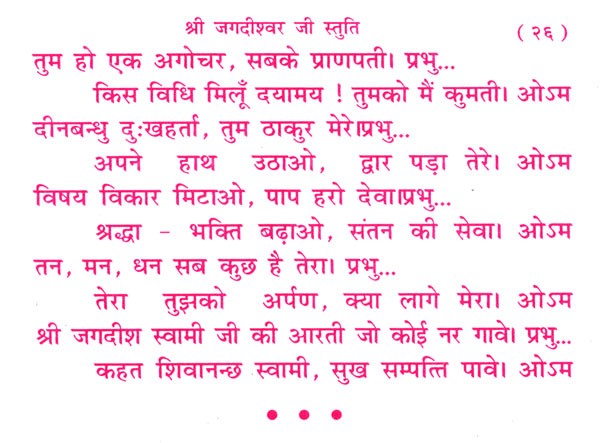 श्री जगदीश्वर जी स्तुति (२६)
तुम हो एक अगोचर, सबके प्राणपती। प्रभु...
किस विधि मिलूँ दयामय ! तुमको मैं कुमती। ओऽम
दीनबन्धु दुःखहर्ता, तुम ठाकुर मेरे।प्रभु...
अपने हाथ उठाओ, द्वार पड़ा तेरे। ओऽम
विषय विकार मिटाओ, पाप हरो देवा।प्रभु...
श्रद्धा - भक्ति बढ़ाओ, संतन की सेवा। ओऽम
तन, मन, धन सब कुछ है तेरा। प्रभु...
तेरा तुझको अर्पण, क्या लागे मेरा। ओऽम
श्री जगदीश स्वामी जी की आरती जो कोई नर गावे। प्रभु...
कहत शिवानन्छ स्वामी, सुख सम्पत्ति पावे। ओऽम